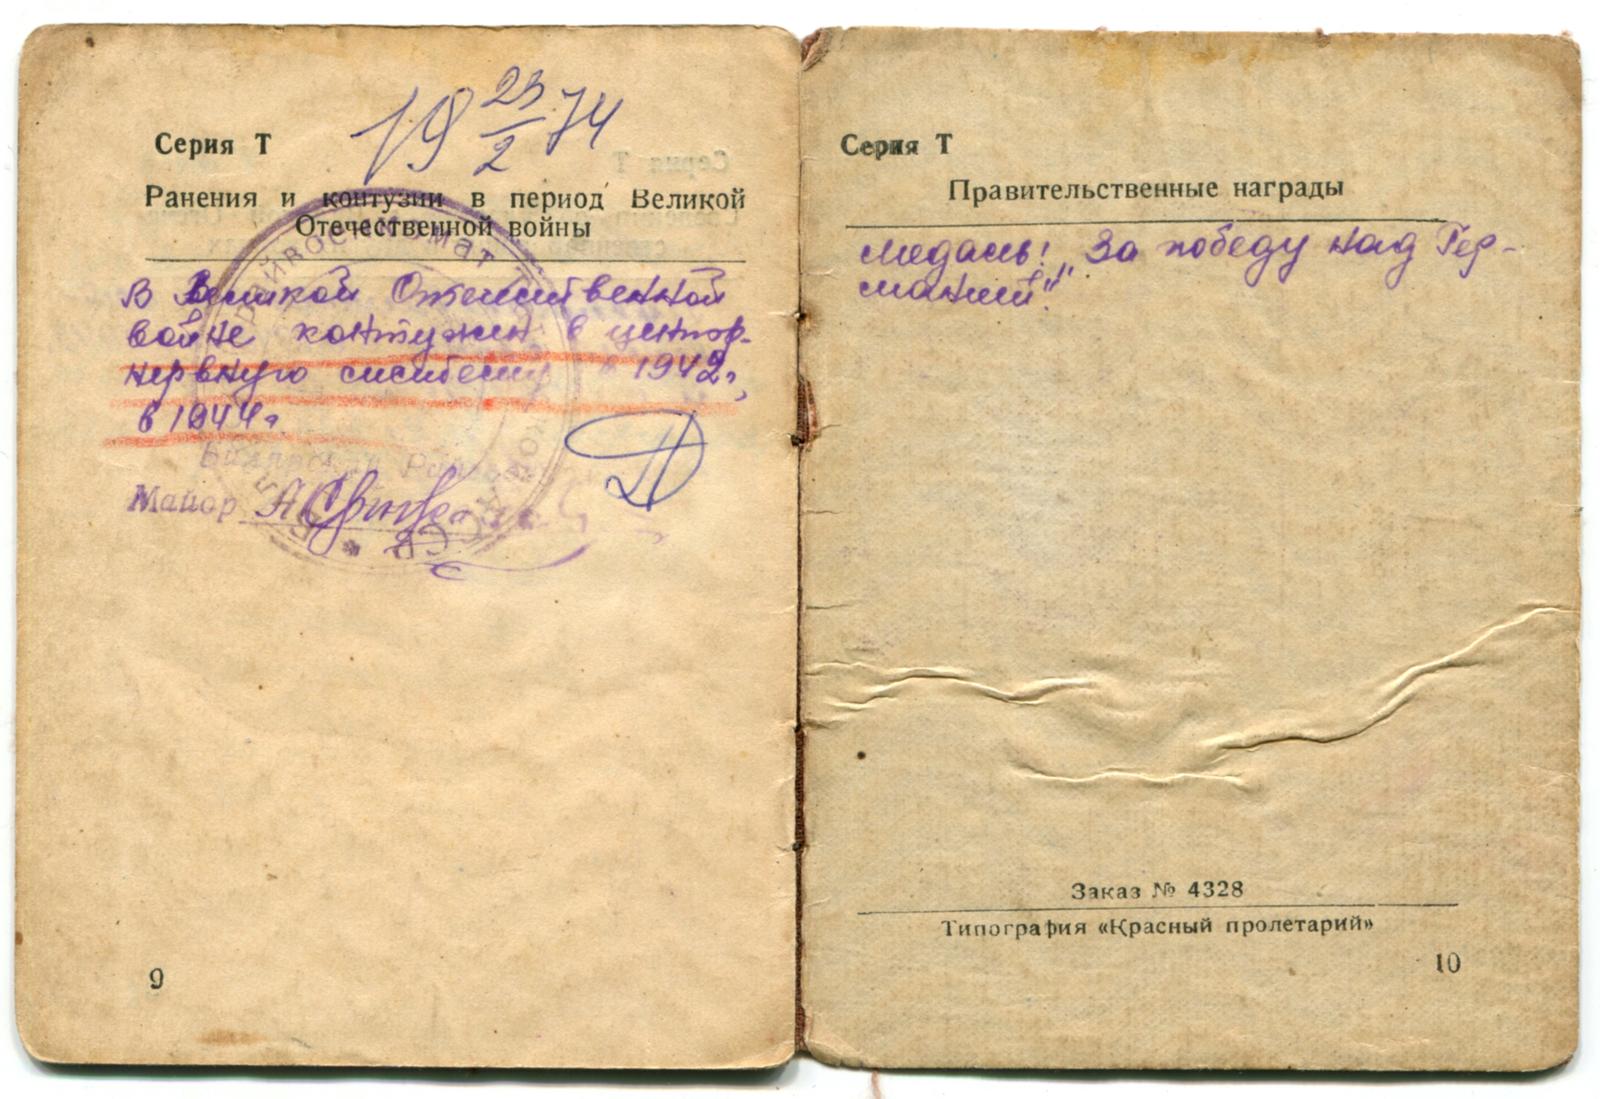 19 23/2 74
Серия Т
Ранения и контузии в период Великой
Отечественной войны
В Великой Отечественной
войне контужен в центр.
нервную систему в 1942г,
в 1944г
Майор
9
Серия Т
Правительственные награды
медаль! „За победу над Гер-
манией!"
Заказ № 4328
Типография «Красный пролетарий»
10